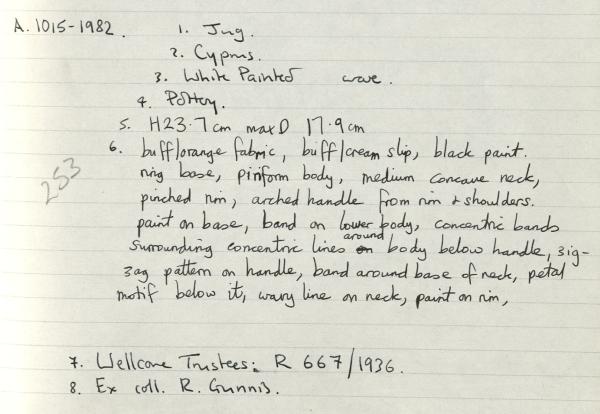 A.1015-1982. 1. Jug.
2. Cyprus.
3. White Painted ware.
4. Pottery.
5. H23.7cm maxD 17.9cm
6. buff/orange fabric, buff/cream slip, black paint.
253
ring base, piriform body, medium concave neck,
pinched rim, arched handle from rim & shoulders.
paint on base, band on lower body, concentric bands
surrounding concentric lines around body below handle, zig-
zag pattern on handle, band around base of neck, petal
motif below it, wavy line on neck, paint on rim,
7. Wellcome Trustees: R 667/1936.
8. Ex coll. R. Gunnis.